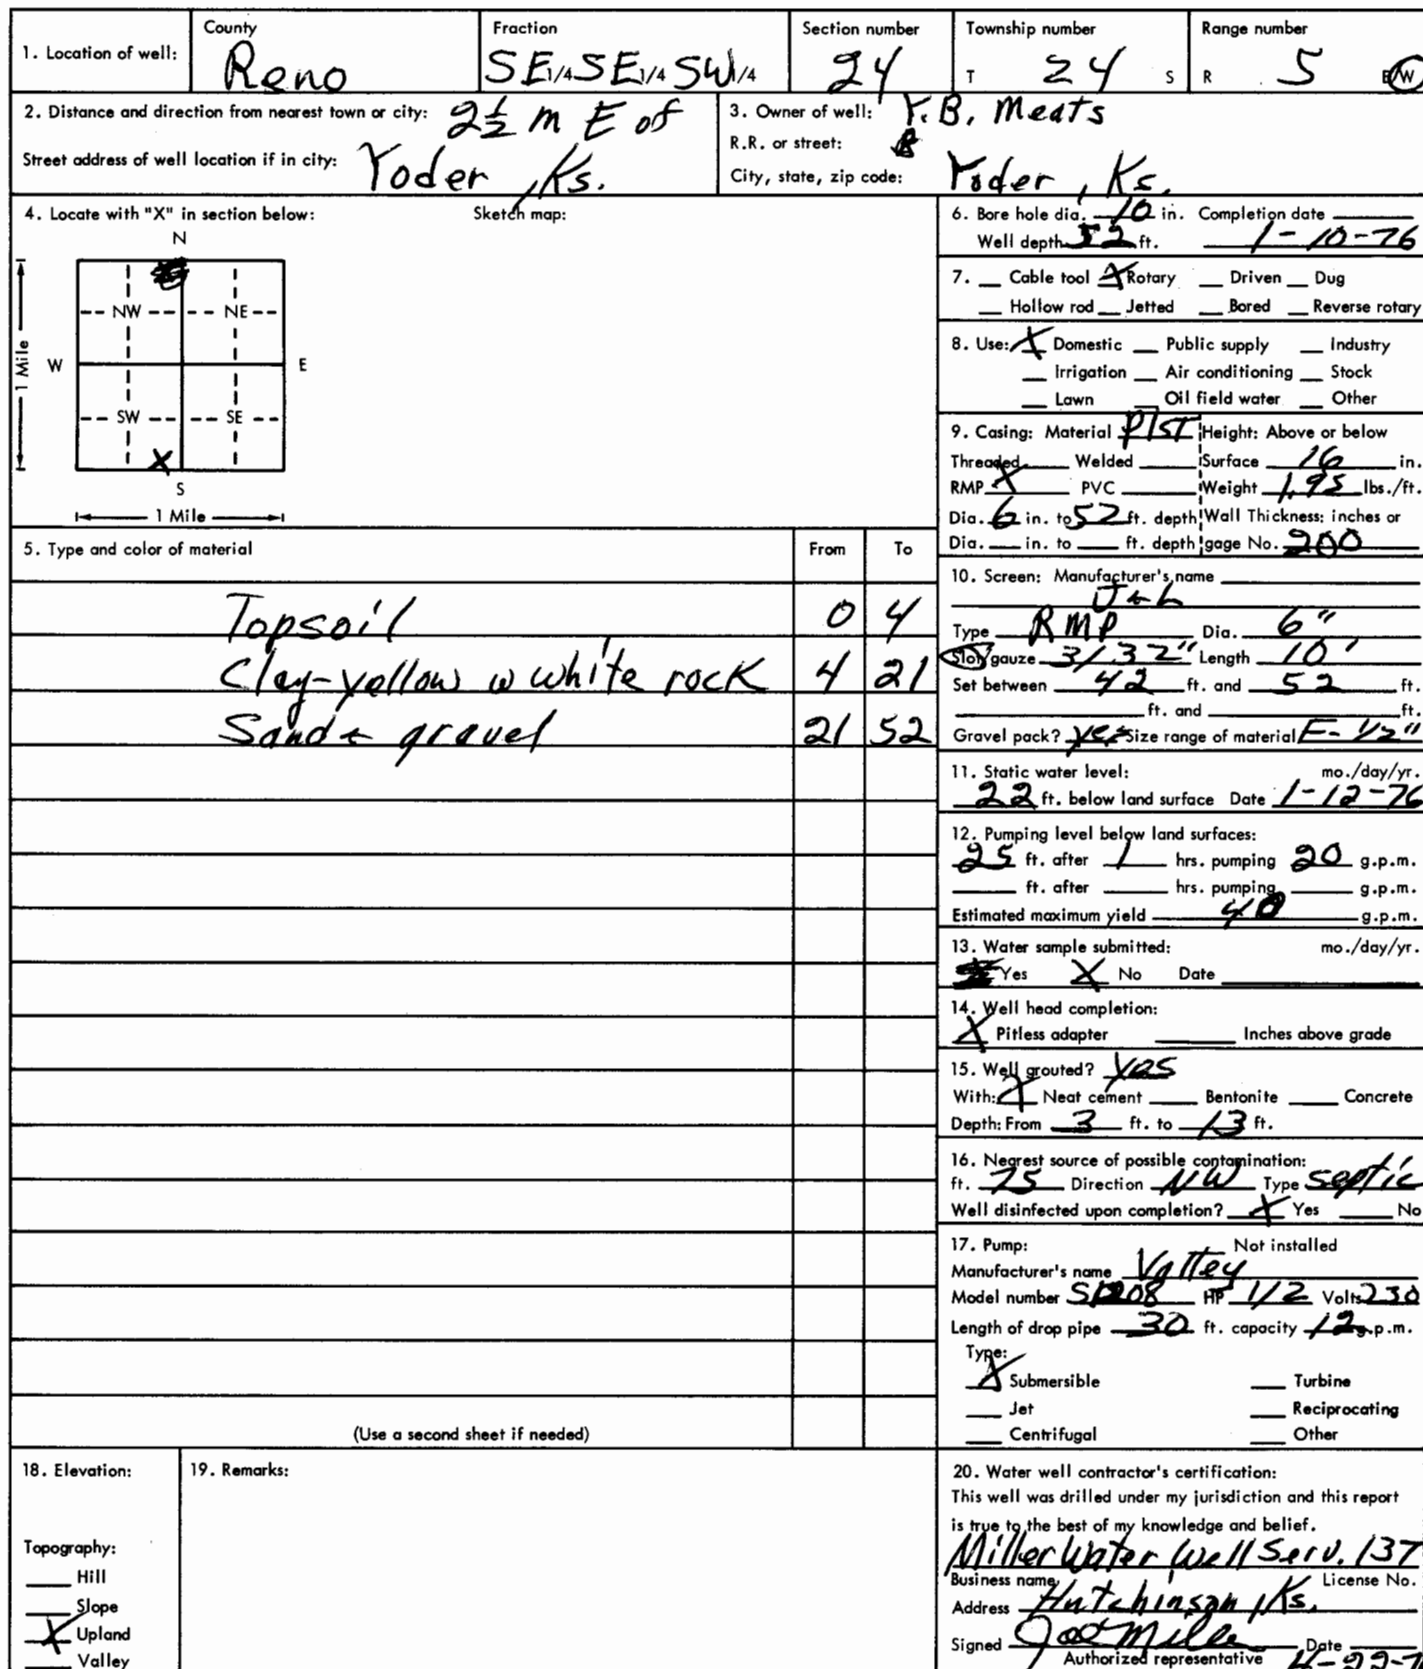 1. Location of well: County Reno Fraction SE 1/4 SE 1/4 SW 1/4 Section number 24 Township number T 24 S Range number R 5 E/W
2. Distance and direction from nearest town or city: 2½ m E of
Street address of well location if in city: Yoder, Ks.
3. Owner of well: Y.B. Meats
R.R. or street:
City, state, zip code: Yoder, Ks.
4. Locate with "X" in section below: Sketch map:
N
NW NE
W E
1 Mile
SW SE
X
S
1 Mile
5. Type and color of material From To
Topsoil 0 4
Clay-yellow w white rock 4 21
Sand & gravel 21 52
(Use a second sheet if needed)
6. Bore hole dia. 10 in. Completion date
Well depth 52 ft. 1-10-76
7. Cable tool X Rotary Driven Dug
Hollow rod Jetted Bored Reverse rotary
8. Use: X Domestic Public supply Industry
Irrigation Air conditioning Stock
Lawn Oil field water Other
9. Casing: Material Plst Height: Above or below
Threaded Welded Surface 16 in.
RMP X PVC Weight 1.95 lbs./ft.
Dia. 6 in. to 52 ft. depth Wall Thickness: inches or
Dia. in. to ft. depth gage No. 200
10. Screen: Manufacturer's name
J & L
Type RMP Dia. 6"
Slot/gauze 3/32" Length 10'
Set between 42 ft. and 52 ft.
ft. and ft.
Gravel pack? yes Size range of material F- 1/2"
11. Static water level: mo./day/yr.
22 ft. below land surface Date 1-12-76
12. Pumping level below land surfaces:
25 ft. after 1 hrs. pumping 20 g.p.m.
ft. after hrs. pumping g.p.m.
Estimated maximum yield 40 g.p.m.
13. Water sample submitted: mo./day/yr.
Yes X No Date
14. Well head completion:
X Pitless adapter Inches above grade
15. Well grouted? yes
With: X Neat cement Bentonite Concrete
Depth: From 3 ft. to 13 ft.
16. Nearest source of possible contamination:
ft. 75 Direction NW Type septic
Well disinfected upon completion? X Yes No
17. Pump: Not installed
Manufacturer's name Valley
Model number HP 1/2 Volts 230
Length of drop pipe 30 ft. capacity 12 g.p.m.
Type:
X Submersible Turbine
Jet Reciprocating
Centrifugal Other
18. Elevation:
Topography:
Hill
Slope
X Upland
Valley
19. Remarks:
20. Water well contractor's certification:
This well was drilled under my jurisdiction and this report
is true to the best of my knowledge and belief.
Miller Water Well Serv. 137
Business name License No.
Address Hutchinson, Ks.
Signed Miller Date
Authorized representative